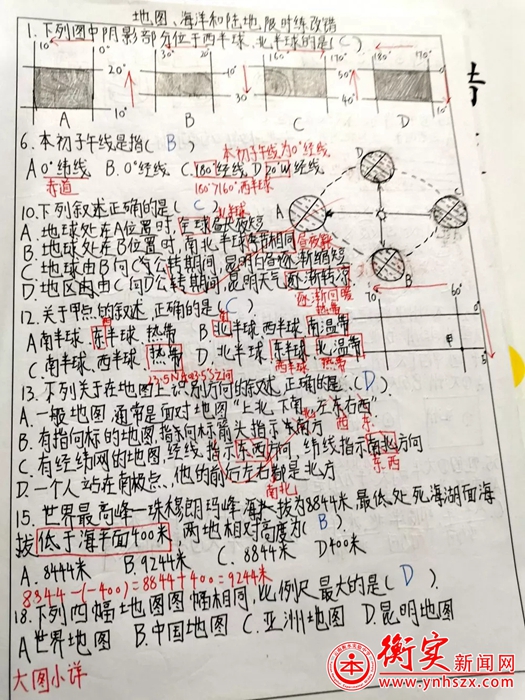 地图、海洋和陆地,限时练改错
1.下列图中阴影部分位于西半球、北半球的是( C ).
10° 0° 30° 20° 160° 170° 180° 170°
20° 0° 50° 10°
10° 30° 40° 0°
A B C D
6.本初子午线是指( B )
本初子午线为0°经线
A 0°纬线 B. 0°经线 C. 180°经线 D 20°W经线
赤道
10.下列叙述正确的是( C )
A. 地球处在A位置时,全球昼长夜短
北半球
B. 地球处在B位置时,南北半球季节相同
昼夜
C. 地球由B向C公转期间,昆明白昼逐渐缩短
D. 地球由C向D公转期间,昆明天气逐渐转凉
逐渐回暖
A B C D
12.关于甲点的叙述,正确的是( C )
70° 60°
甲
热带
A南半球.东半球.热带 B.北半球.西半球.南温带
C.南半球、西半球.热带 D.北半球.东半球.北温带
西半球 热带
13.下列关于在地图上识别方向的叙述,正确的是( D )
A.一般地图通常是面对地图"上北下南,左东右西"
西 东
B.有指向标的地图,指向标箭头指示东南方
北
C.有经纬网的地图,经线指示东西方向,纬线指示南北方向
南北
东西
D.一个人站在南极点、他的前后左右都是北方
15.世界最高峰—珠穆朗玛峰海拔为8844米,最低处死海湖面海
拔低于海平面400米,两地相对高度为( B )
A. 8444米 B.9244米 C. 8844米 D400米
8844-(-400)=8844+400=9244米
18.下列四幅地图图幅相同,比例尺最大的是( D ).
A世界地图 B.中国地图 C.亚洲地图 D.昆明地图
大图小详
衡实新闻网
www.ynhszx.com